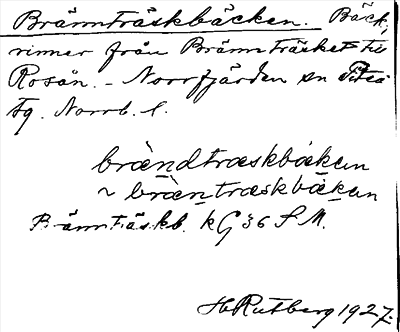 Brännträskbäcken. Bäck,
rinner från Brännträsket till
Rosån. - Norrfjärden sn Piteå
tg. Norrb. l.
brändtræskbäken
~ bräntræskbäken
Brännträskb. kG 36 S M.
H Rutberg 1927.